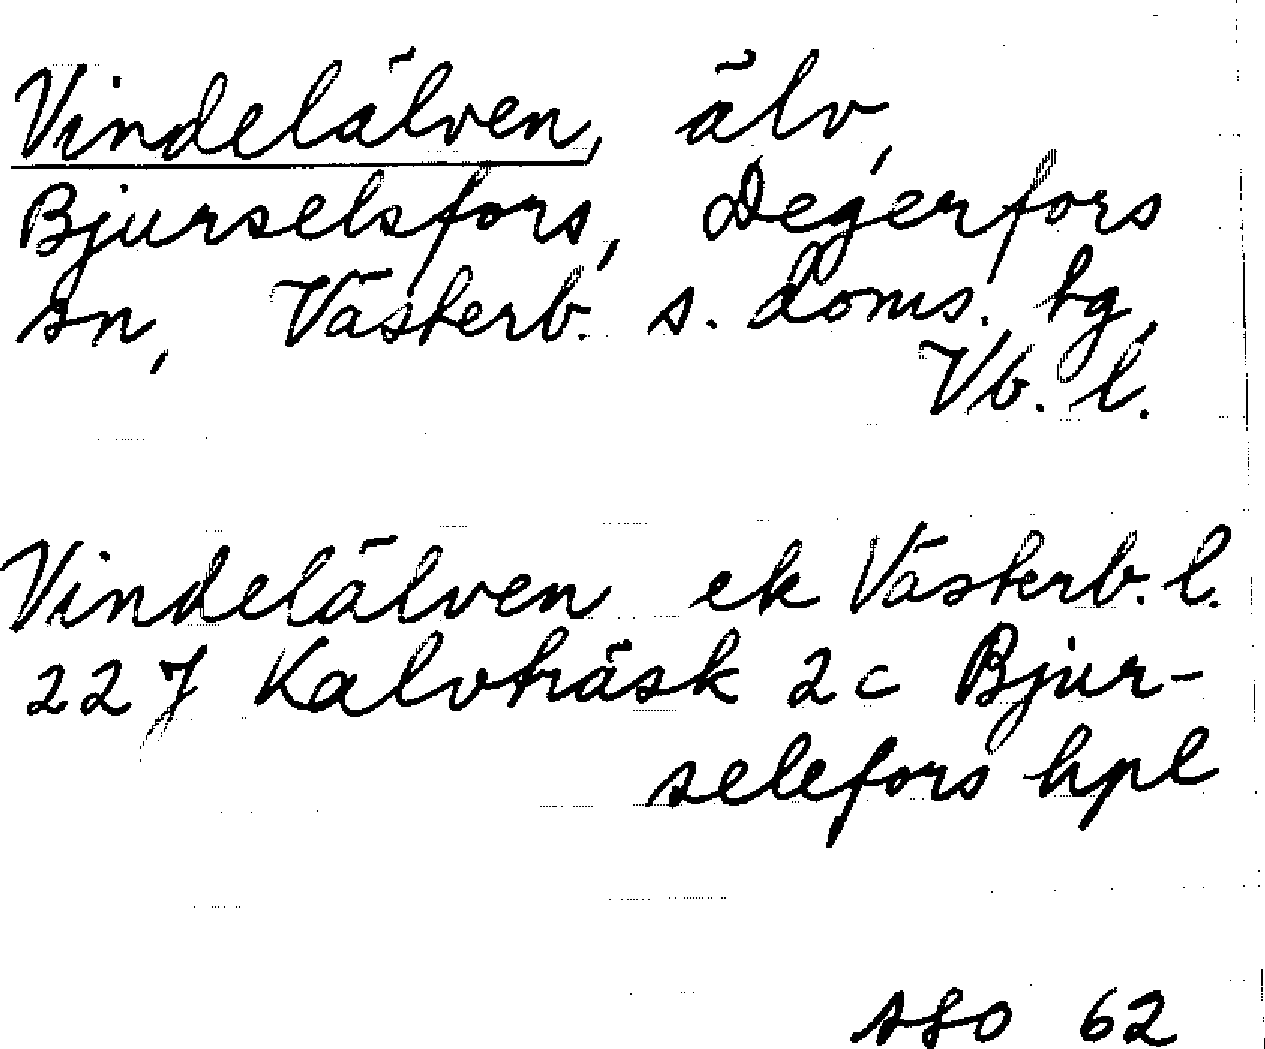 Vindelälven, älv,
Bjurselsfors, Degerfors
sn, Västerb. s. doms. tg,
Vb. l.
Vindelälven ek Västerb. l.
22 J Kalvträsk 2 c Bjur-
selefors hpl
SSO 62